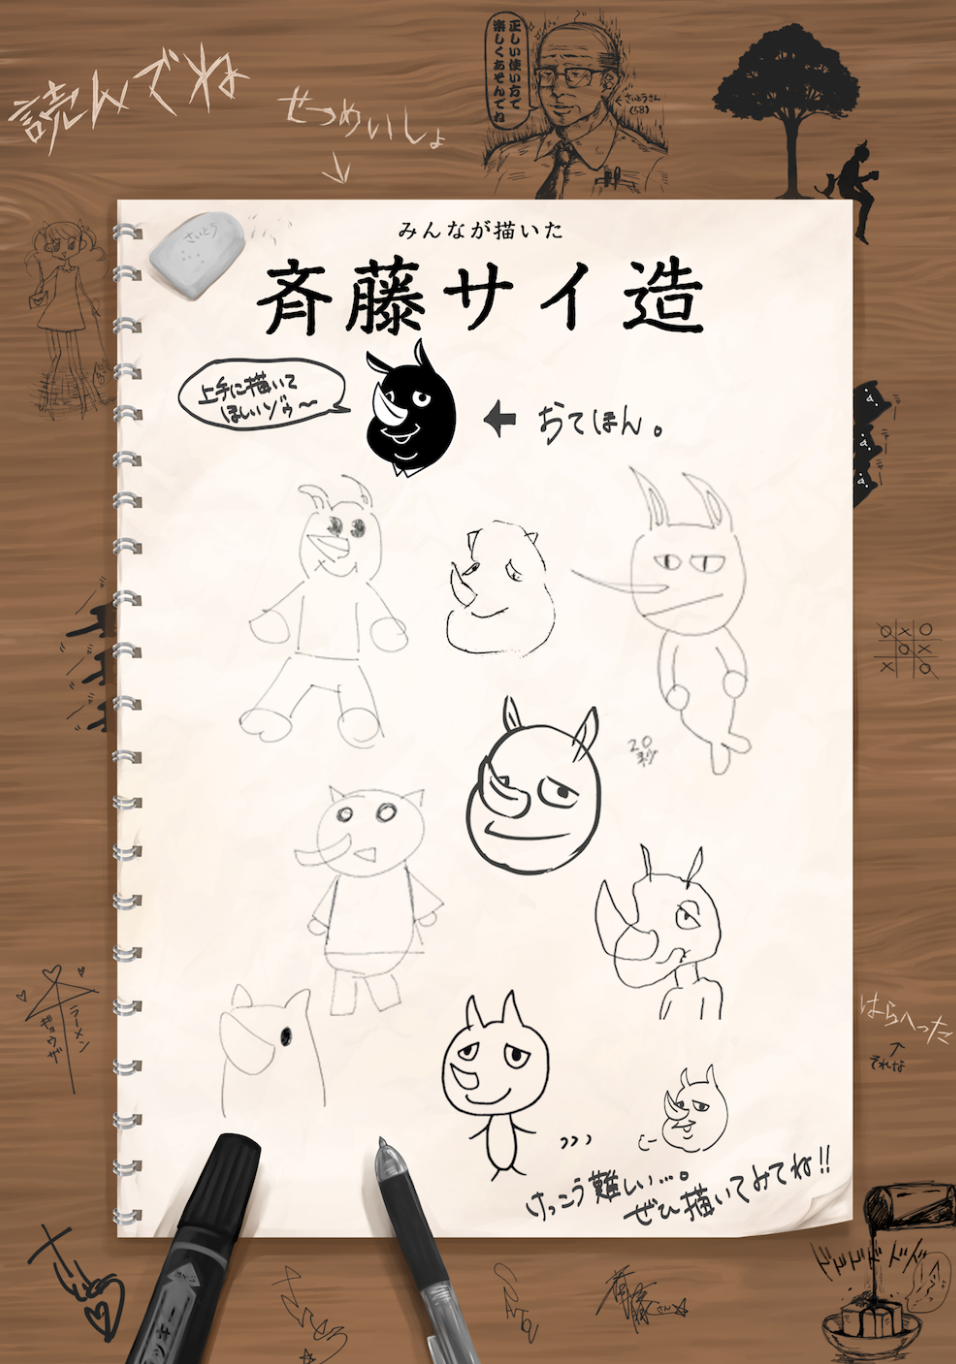 読んでね
せつめいしょ
正しい使い方で
楽しくあそんでね
さいとうさん
(58)
さいとう
みんなが描いた
斉藤サイ造
上手に描いて
ほしいゾゥ〜
おてほん。
20
秒
○×○
○×
×○
ラーメン
ギョウザ
はらへった
それな
けっこう難しい…。
ぜひ描いてみてね!!
ドドドドドド
さいとう
さいとう
斉藤さん